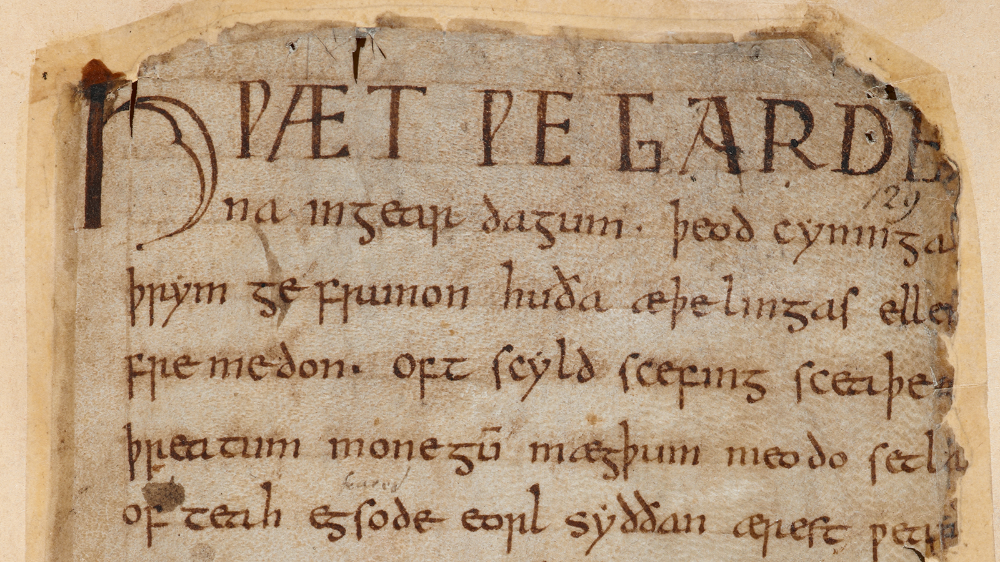 HǷÆT ǷE GARDE
129
na ingear dagum. þeod cyninga
þrym ge frunon huða æþelingas ellen
fremedon. oft scyld scefing sceaþe
þreatum monegū mægþum meodo setla
of teah egsode eorl syððan ærest ƿear